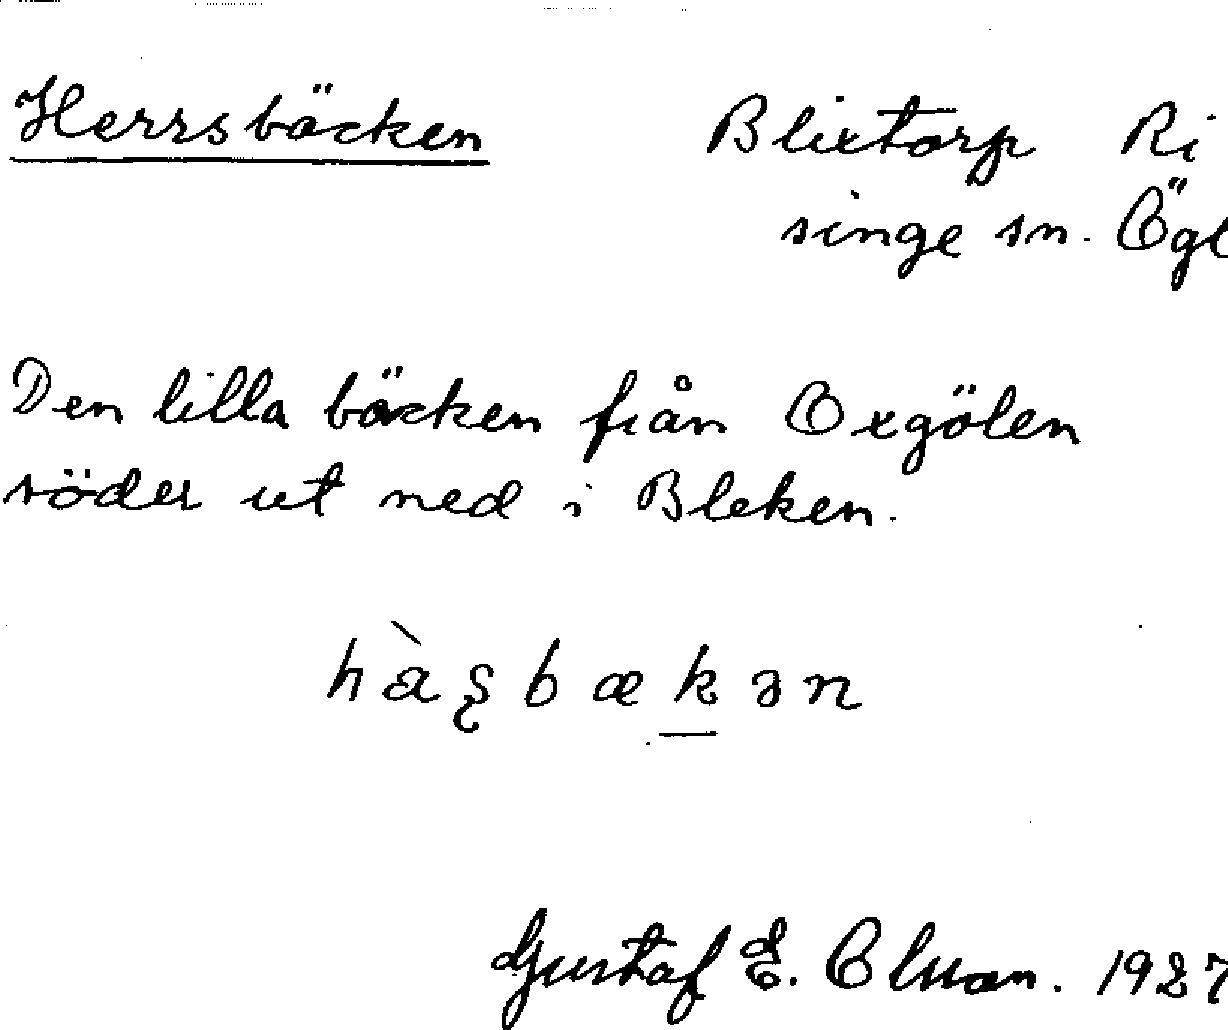 Herrsbäcken Blixtorp Ri
singe sn. Ögl
Den lilla bäcken från Oxgölen
söder ut ned i Bleken.
hàʂbækən
Gustaf E. 1927